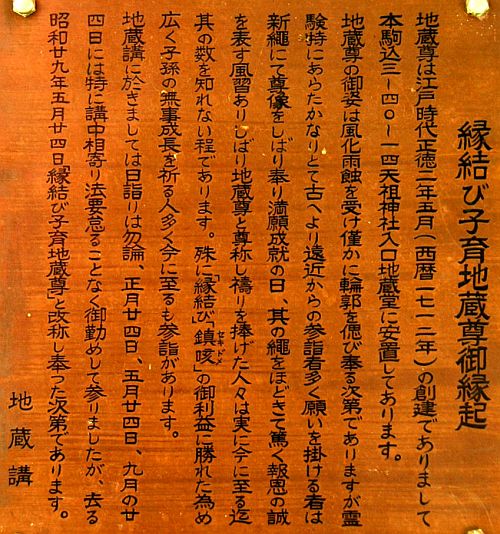 縁結び子育地蔵尊御縁起
地蔵尊は江戸時代正徳二年五月(西暦一七一二年)の創建でありまして
本駒込三−四〇−一四天祖神社入口地蔵堂に安置してあります。
地蔵尊の御姿は風化雨蝕を受け僅かに輪郭を偲び奉る次第でありますが霊
験特にあらたかなりとて古へより遠近からの参詣者多く願いを掛ける者は
新縄にて尊像をしばり奉り満願成就の日、其の縄をほどきて篤く報恩の誠
を表す風習ありしばり地蔵尊と尊称し禱りを捧げた人々は実に今に至る迄
其の数を知れない程であります。殊に「縁結び」「鎮咳」の御利益に勝れた為め
セキドメ
広く子孫の無事成長を祈る人多く今に至るも参詣があります。
地蔵講に於きましては日詣りは勿論、正月廿四日、五月廿四日、九月の廿
四日には特に講中相寄り法要怠ることなく御勤めして参りましたが、去る
昭和廿九年五月廿四日「縁結び子育地蔵尊」と改称し奉った次第であります。
地蔵講